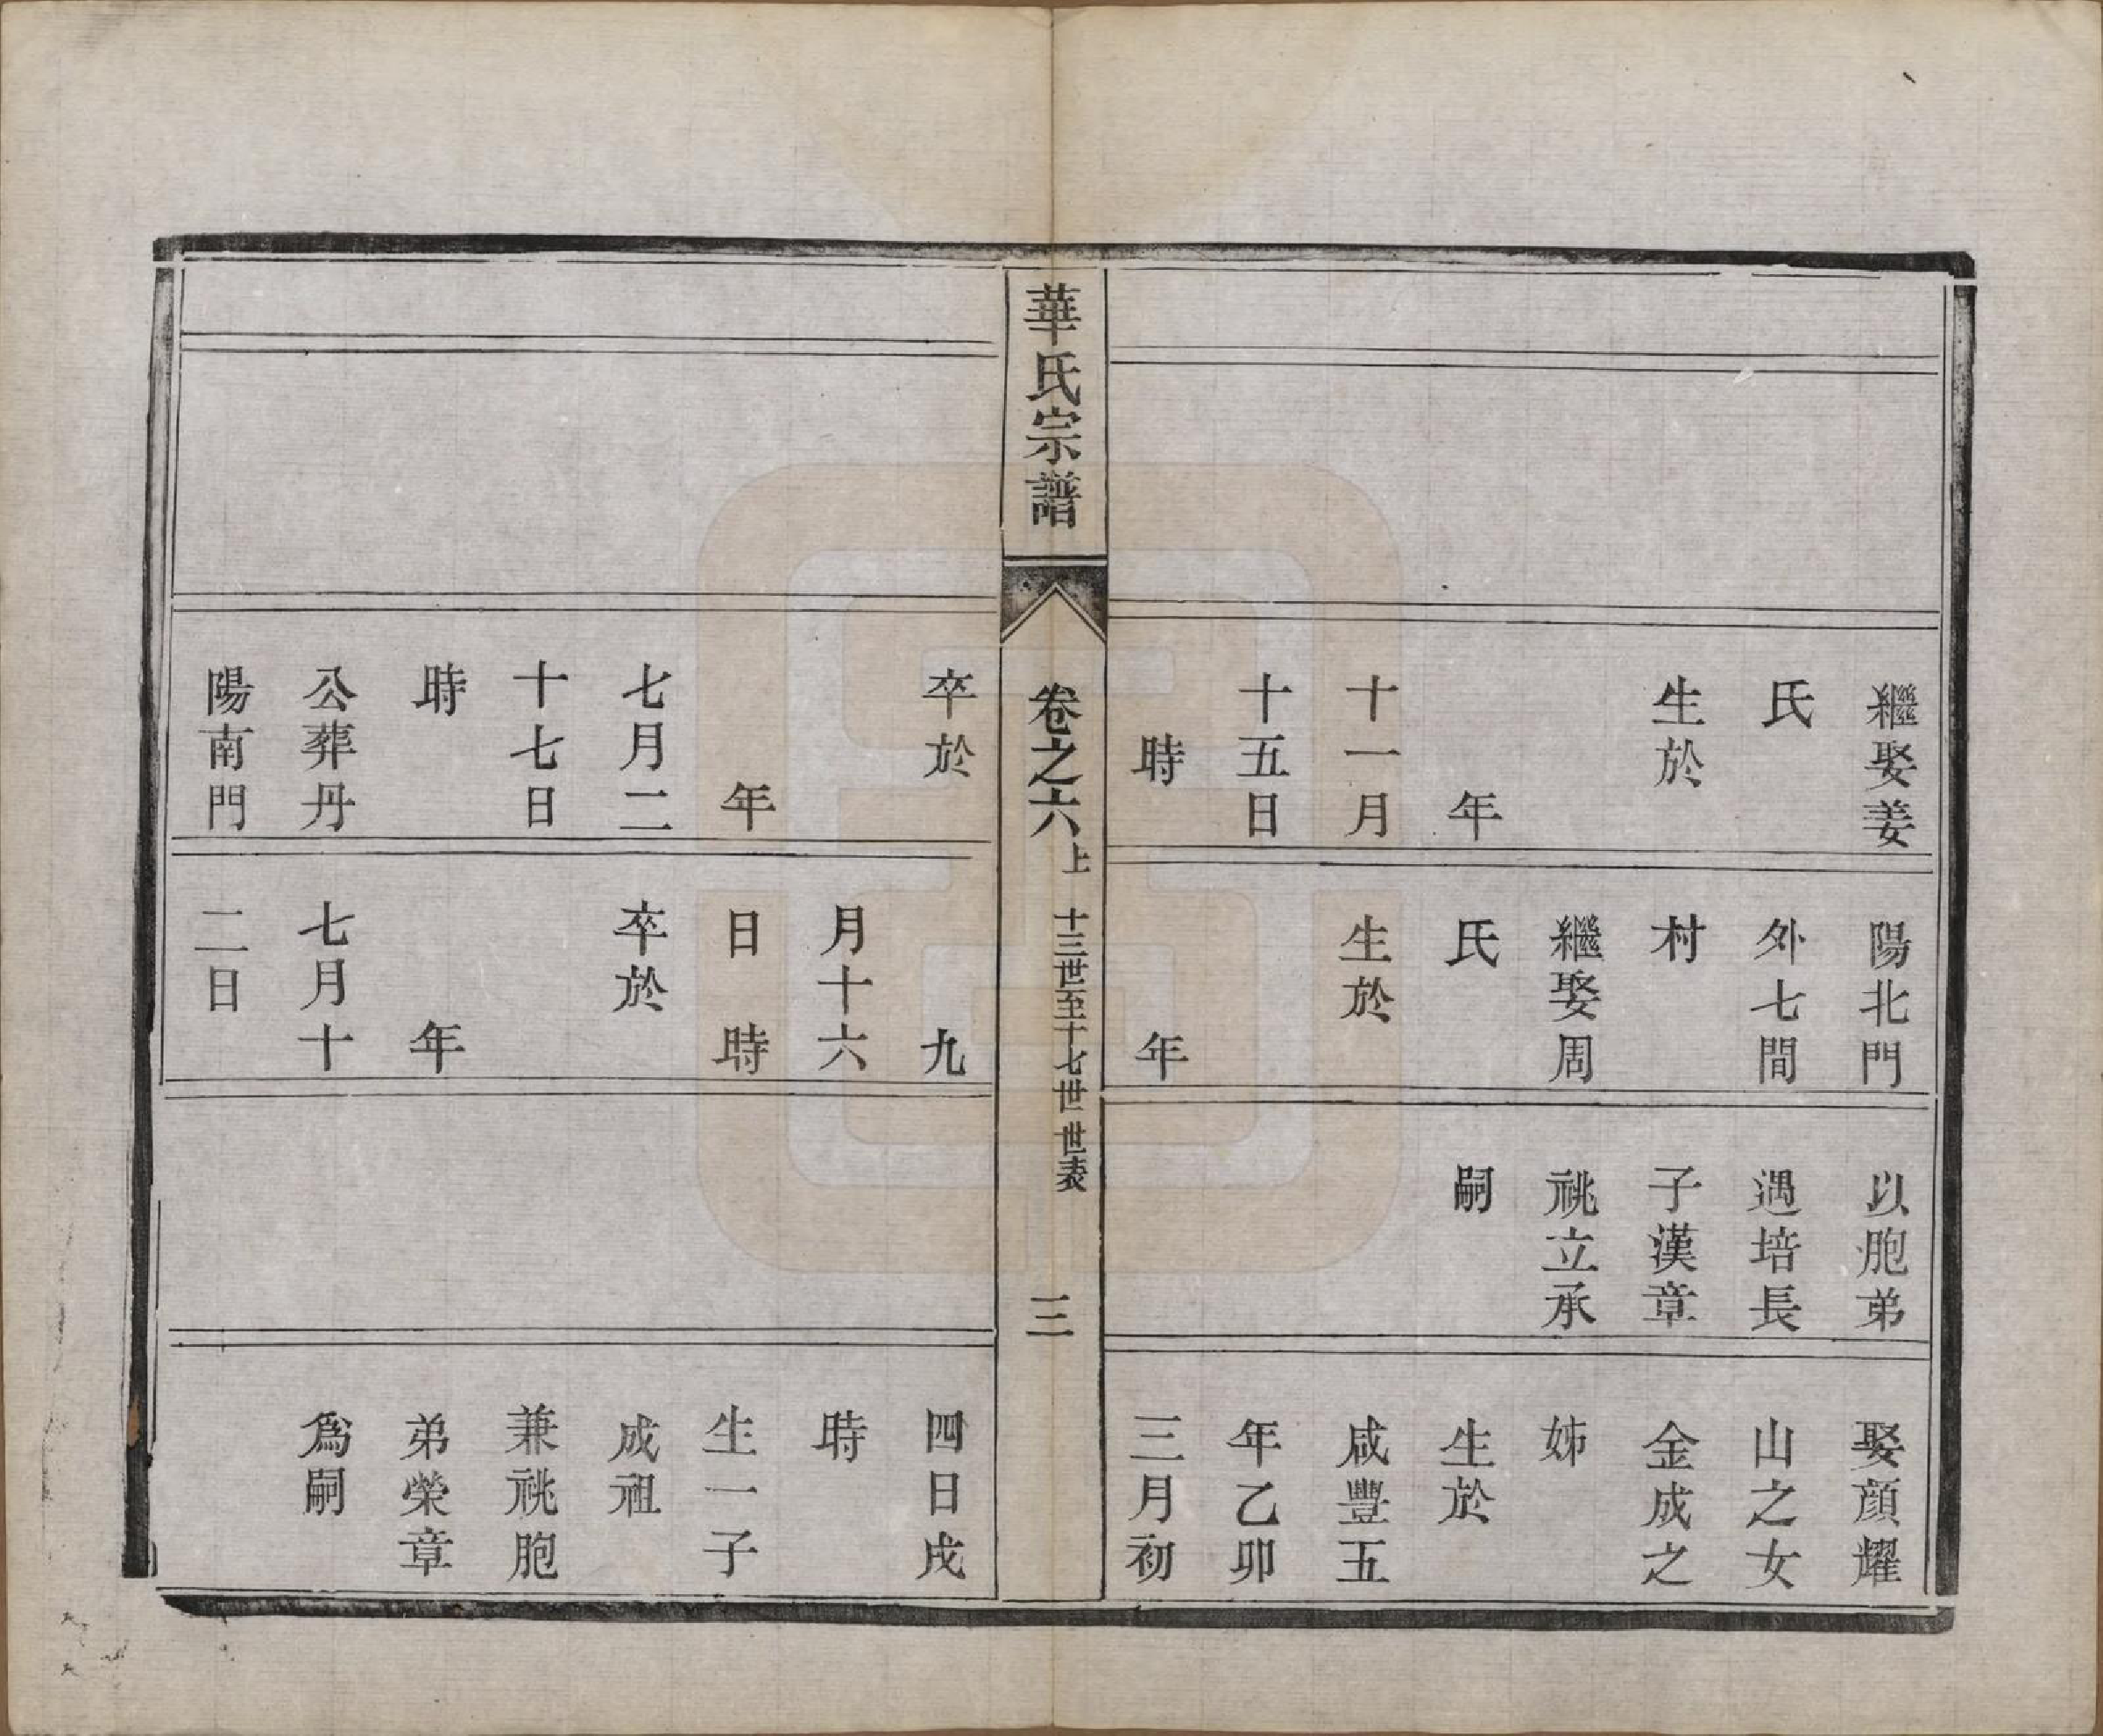 繼娶姜
氏
生於
年
十一月
十五日
時
陽北門
外七間
村
繼娶周
氏
生於
年
以胞弟
遇培長
子漢章
祧立承
嗣
娶顔耀
山之女
金成之
姊
生於
咸豐五
年乙卯
三月初
華氏宗譜
卷之六上 十三世至十七世世表
三
卒於
年
七月二
十七日
時
公葬丹
陽南門
九
月十六
日 時
卒於
年
七月十
二日
四日戌
時
生一子
成祖
兼祧胞
弟榮章
爲嗣